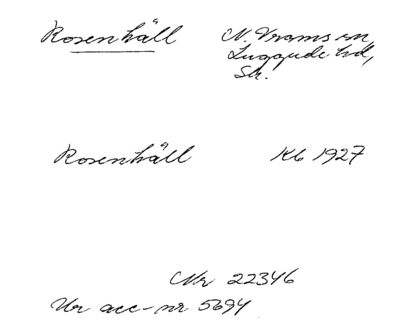 Rosenhäll N. Vrams sn,
Luggude hd,
Sk.
Rosenhäll Kb 1927
Nr 22346
Ur acc-nr 5694